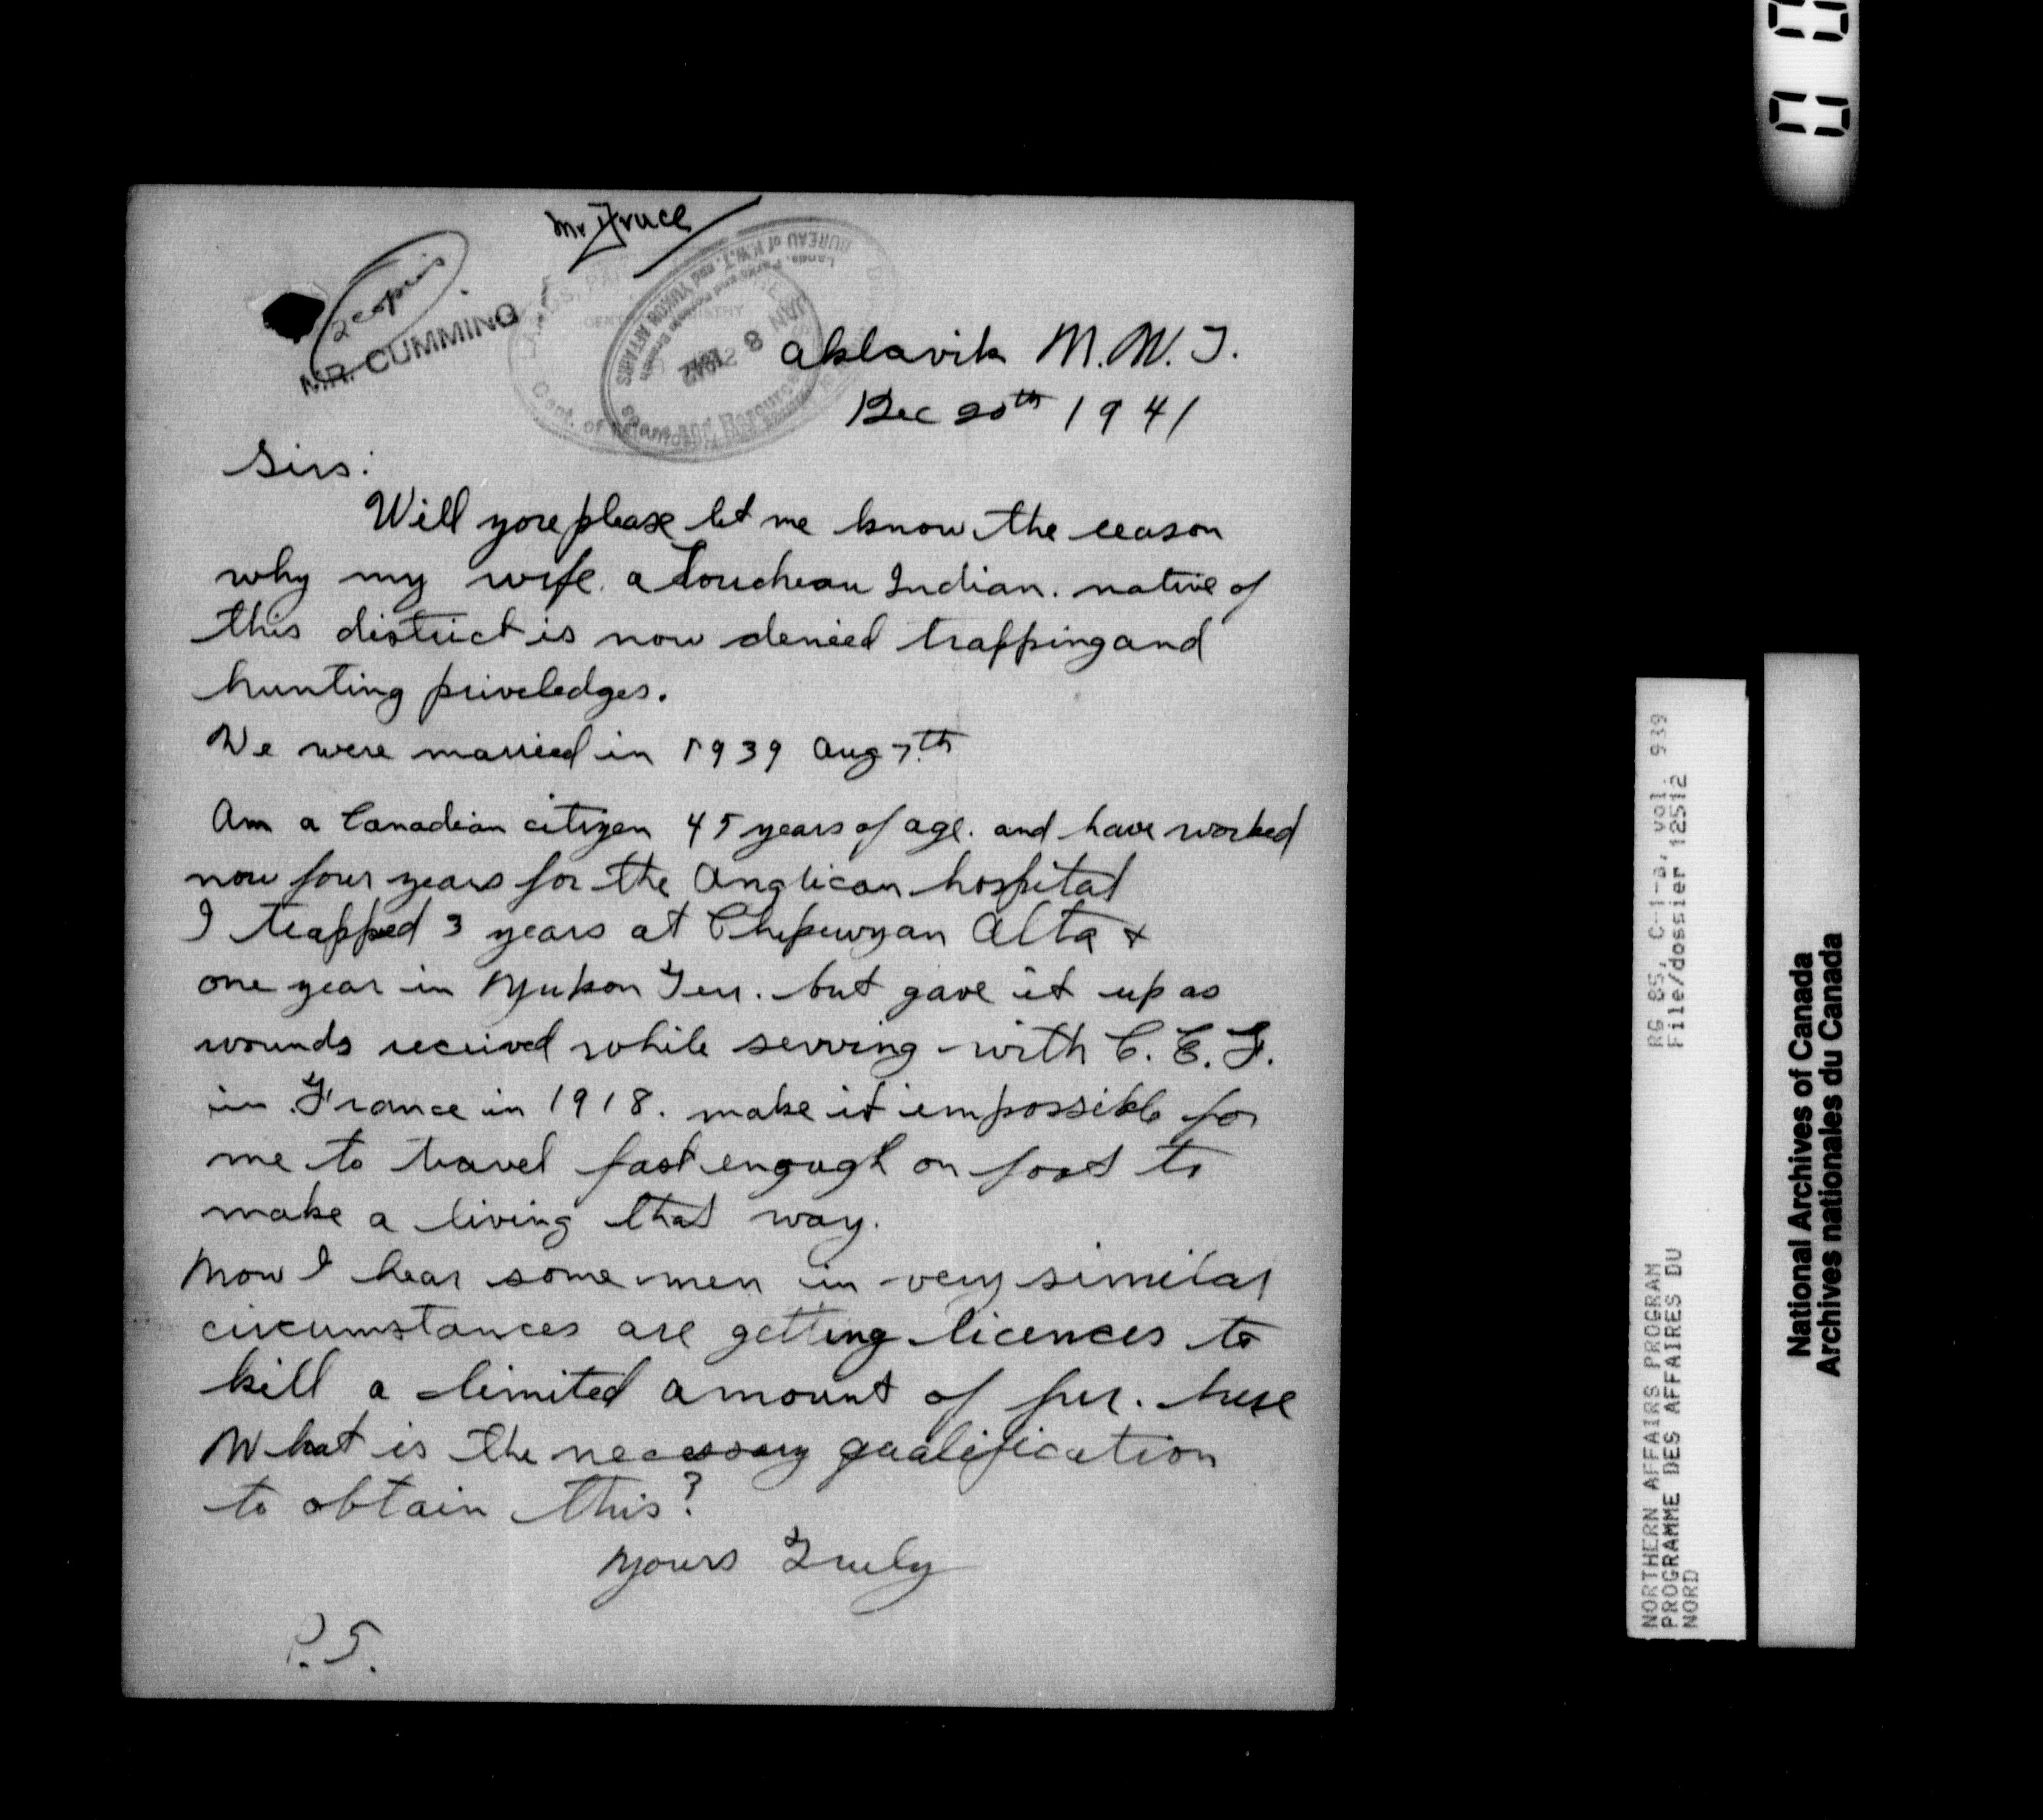 Mr Druce
2 copies
MR. CUMMING
BUREAU of N.W.T. and YUKON AFFAIRS
Lands, Parks and Forests Branch
JAN 8 1942
Aklavik N.W.T.
Dec 20th 1941
Sirs:
Will you please let me know the reason
why my wife. a Loucheau Indian. native of
this district is now denied trapping and
hunting priveledges.
We were married in 1939 Aug 7th
Am a Canadian citizen 45 years of age. and have worked
now four years for the Anglican hospital
I trapped 3 years at Chipewyan Alta &
one year in Yukon Terr. but gave it up as
wounds received while serving with C.E.F.
in France in 1918. make it impossible for
me to travel fast enough on foot to
make a living that way.
Now I hear some men in very similar
circumstances are getting licences to
kill a limited amount of fur. here
What is the necessary qualification
to obtain this?
Yours Truly
P.S.
RG 85, C-1-a, vol. 939
File/dossier 12512
NORTHERN AFFAIRS PROGRAM
PROGRAMME DES AFFAIRES DU
NORD
National Archives of Canada
Archives nationales du Canada